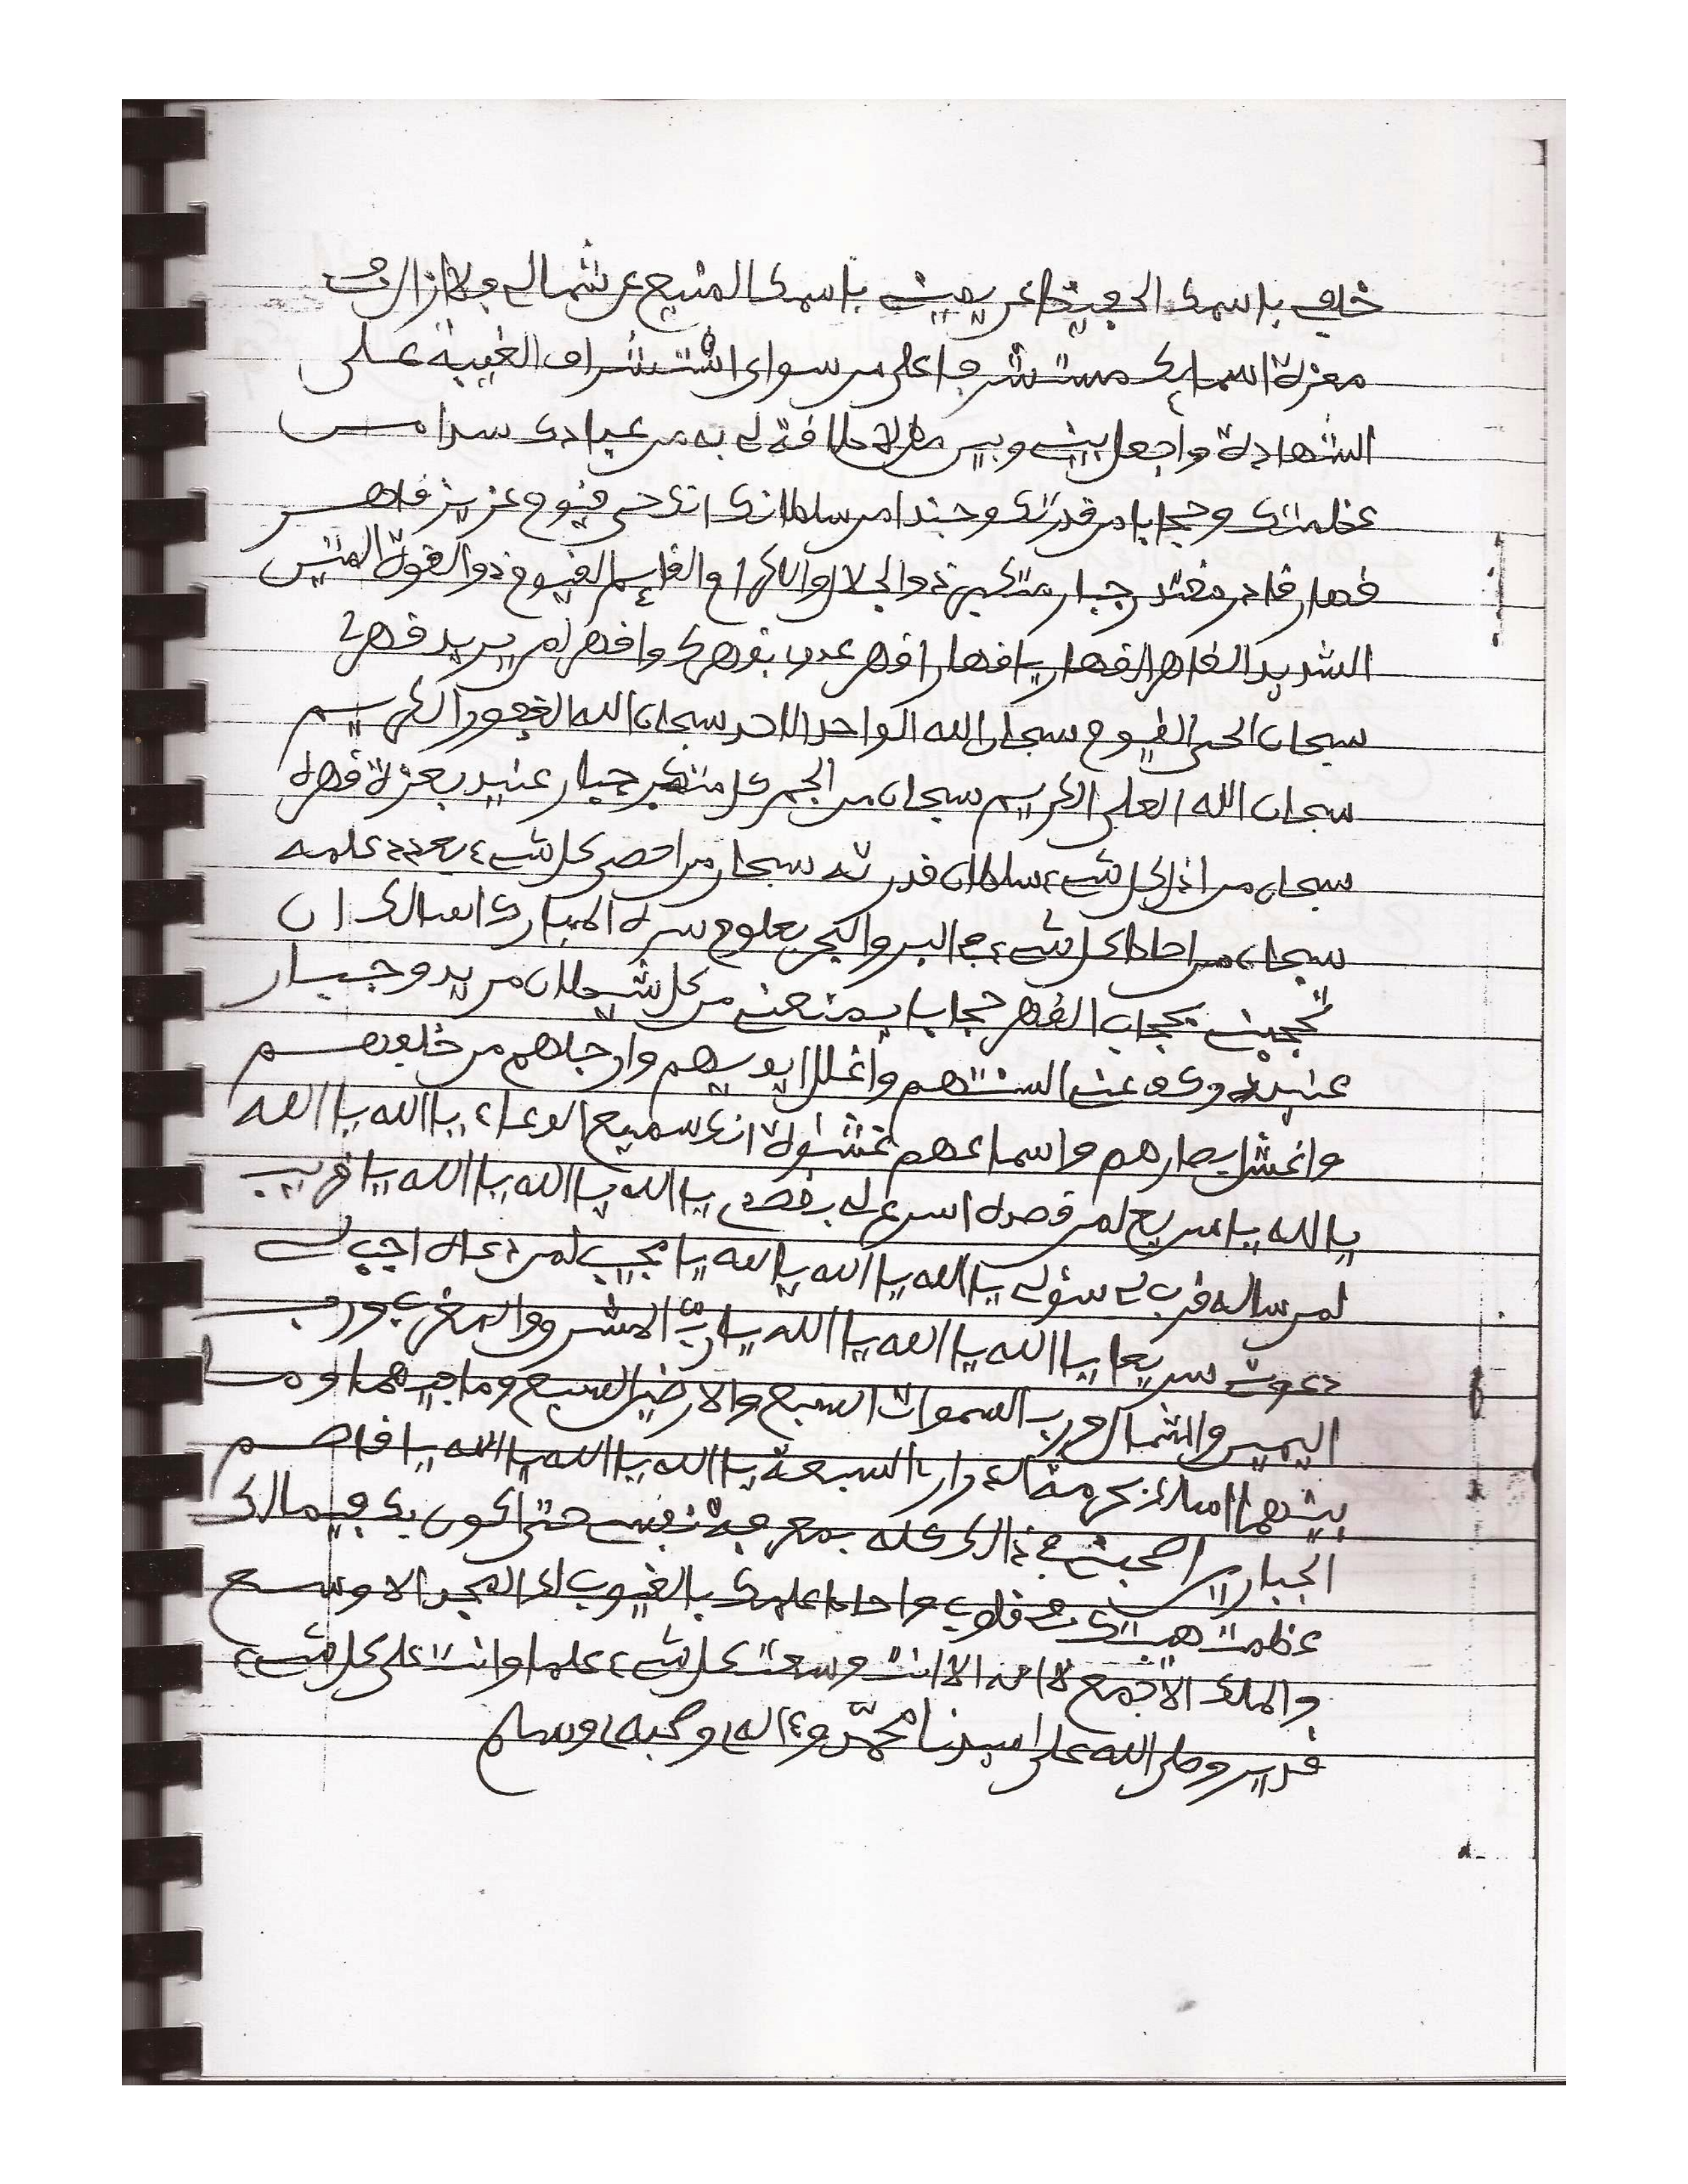 خلفي باسمك الحفيظ عن يميني باسمك المنيع عن شمالي ولا ازال في
معزة اسمايك مستشرفا على من سواي استشراف الغيبة على
الشهادة واجعل بيني وبين من لا طاقة لي به من عبادك سدا من
عظمتك وحجابا من قدرتك وجندا من سلطانك انك حي قيوم عزيز قاهر
قهار قادر مقتدر جبار متكبر ذو الجلال والاكرام والقايم القيوم ذو القوة المتين
الشديد القاهر القهار يا قهار اقهر عدوي بقهرك واقهر لمن يريد قهري
سبحان الحي القيوم سبحان الله الواحد الاحد سبحان الله الغفور الكريم
سبحان الله العلي الكريم سبحان من الجم كل متكبر جبار عنيد بعزة قهره
سبحان من اذل كل شيء سلطان قدرته سبحان من احصى كل شيء بعدد علمه
سبحان من احاط كل شيء في البر والبحر بعلوم سره المبارك اسالك ان
تحجبني بحجاب القهر حجابا يمنعني من كل شيطان مريد وجبار
عنيد وكف عني السنتهم واغلل ايديهم وارجلهم من خلفهم
واغش ابصارهم واسماعهم غشوة انك سميع الدعاء يا الله يا الله
يا الله يا سريع لمن قصده اسرع لي بقصدي يا الله يا الله يا الله يا الله يا قريب
لمن ساله قرب لي سؤلي يا الله يا الله يا الله يا الله يا مجيب لمن دعاه اجب لي
دعوتي سريعا يا الله يا الله يا الله يا الله يا رب المشرق والمغرب ورب
اليمين والشمال ورب السموات السبع والارضين السبع وما فيهما وما
بينهما اسالك بحرمة السبعة يا الله يا الله يا الله يا الله يا قاصم
الجبارين اصحبني في ذلك كله بمعرفة نفسي حتى اكون بك فيما لك
عظمت هيبتك في قلوب واحاط علمك بالغيوب لك المجد الاوسع
والملك الاجمع لا اله الا انت وسعت كل شيء علما وانت على كل شيء
قدير وصلى الله على سيدنا محمد وءاله وصحبه وسلم